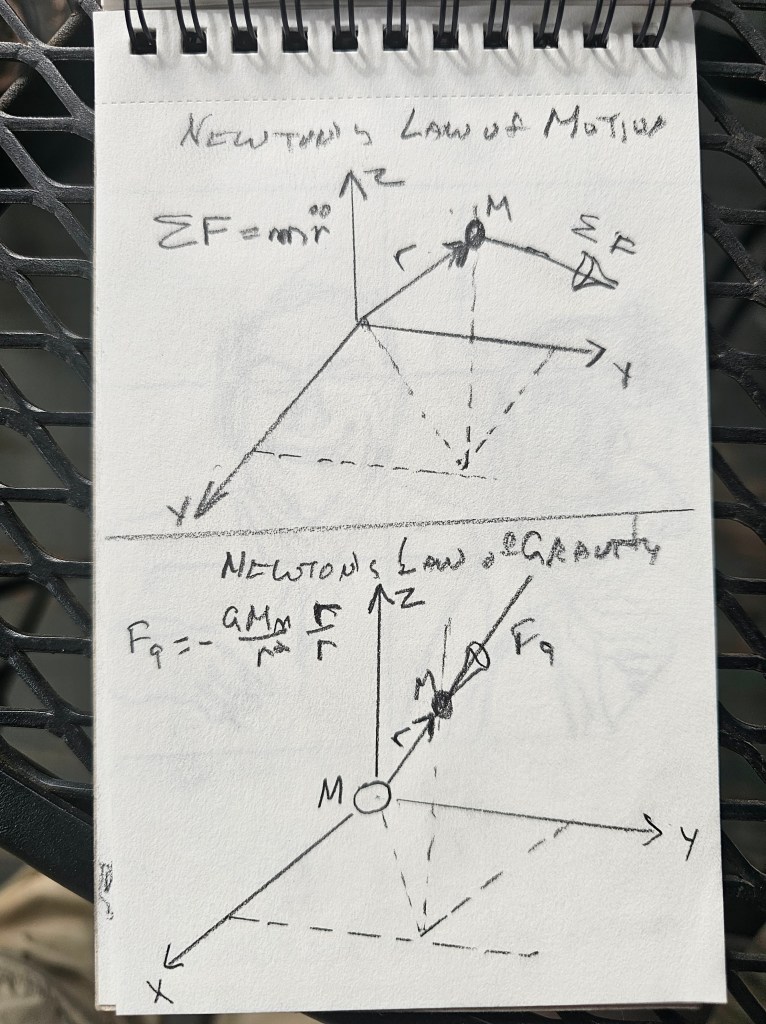 NEWTON'S LAW OF MOTION
Z
ΣF = mr̈
M
r
ΣF
Y
Y
NEWTON'S LAW OF GRAVITY
Z
Fg = - GMm/r² r/r
Fg
M
r
M
Y
X